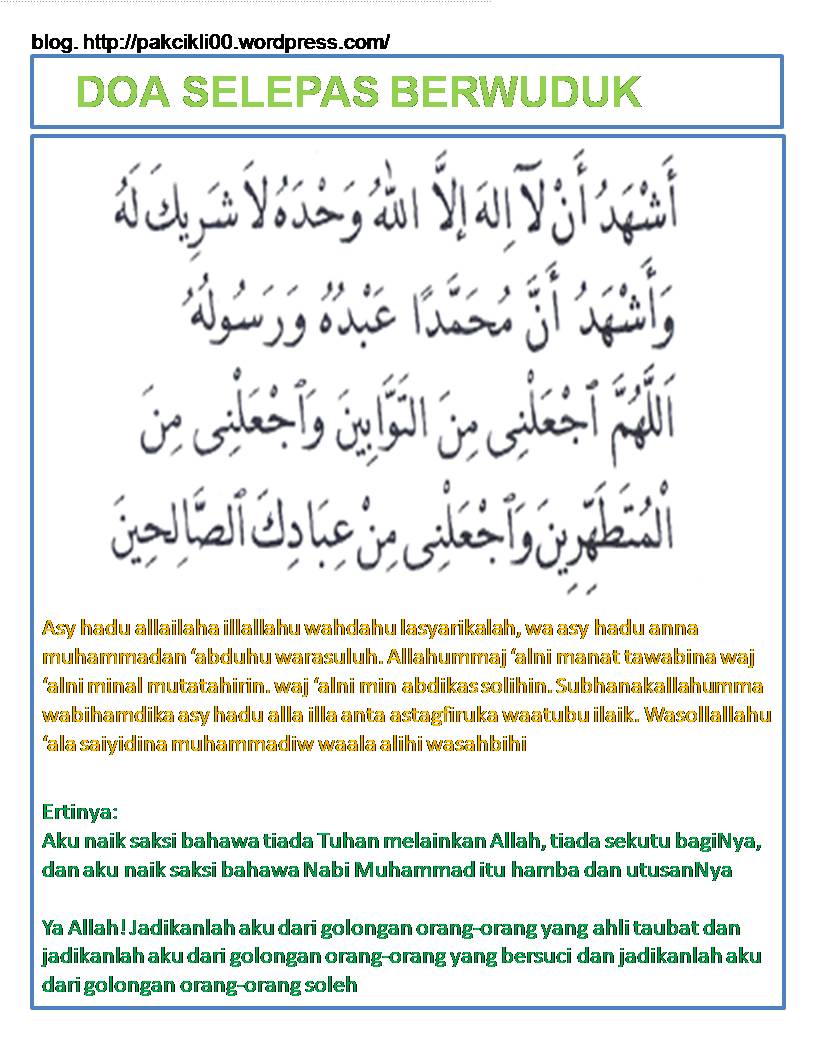 blog. http://pakcikli00.wordpress.com/
DOA SELEPAS BERWUDUK
أَشْهَدُ أَنْ لَآ اِلهَ إِلَّا اللهُ وَحْدَهُ لَا شَرِيكَ لَهُ
وَأَشْهَدُ أَنَّ مُحَمَّدًا عَبْدُهُ وَرَسُولُهُ
اَللَّهُمَّ ٱجْعَلْنِى مِنَ التَّوَّابِينَ وَٱجْعَلْنِى مِنَ
الْمُتَطَهِّرِينَ وَٱجْعَلْنِى مِنْ عِبَادِكَ ٱلصَّالِحِينَ
Asy hadu allailaha illallahu wahdahu lasyarikalah, wa asy hadu anna
muhammadan ‘abduhu warasuluh. Allahummaj ‘alni manat tawabina waj
‘alni minal mutatahirin. waj ‘alni min abdikas solihin. Subhanakallahumma
wabihamdika asy hadu alla illa anta astagfiruka waatubu ilaik. Wasollallahu
‘ala saiyidina muhammadiw waala alihi wasahbihi
Ertinya:
Aku naik saksi bahawa tiada Tuhan melainkan Allah, tiada sekutu bagiNya,
dan aku naik saksi bahawa Nabi Muhammad itu hamba dan utusanNya
Ya Allah! Jadikanlah aku dari golongan orang-orang yang ahli taubat dan
jadikanlah aku dari golongan orang-orang yang bersuci dan jadikanlah aku
dari golongan orang-orang soleh